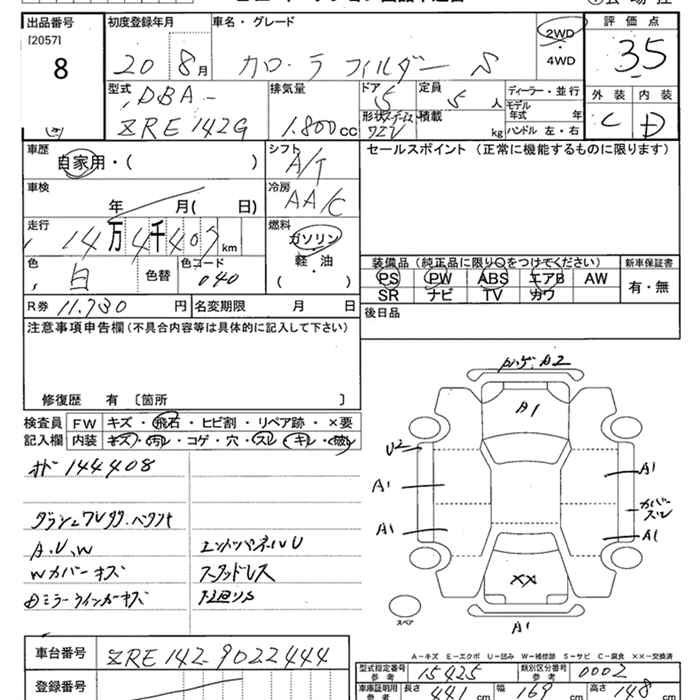 出品番号 初度登録年月 車名・グレード 2WD・4WD 評価点
[2057]
8 20 8月 カローラ フィルダー S 3.5
型式 DBA- ZRE142G 排気量 1.800cc ドア 5 定員 5人 ディーラー・並行 外装 C 内装 D
形状 積載 kg モデル年式 年 ハンドル 左・右
車歴 自家用・( ) シフト A/T セールスポイント (正常に機能するものに限ります)
車検 年 月( 日) 冷房 AA/C
走行 14万4千409km 燃料 ガソリン 軽・油 ( )
色 白 色替 色コード 040
装備品 (純正品に限り○をつけてください) 新車保証書
PS PW ABS エアB AW 有・無
SR ナビ TV カワ
R券 11.730円 名変期限 月 日 後日品
注意事項申告欄 (不具合内容等は具体的に記入して下さい)
修復歴 有 [箇所 ]
検査員 FW キズ・飛石・ヒビ割・リペア跡・×要
記入欄 内装 キズ・汚レ・コゲ・穴・スレ・キレ・破レ
144408
A.U.W
Wカバーキズ
スタッドレス
ミラーウインカーキズ
A2
A1
U2
A1
A1
A1
カバースレ
A1
XX
スペア
A1
A-キズ E-エクボ U-凹み W-補修跡 S-サビ C-腐食 XX-交換済
車台番号 ZRE142-9022444
登録番号
型式指定番号 参考 15425 類別区分番号 参考 0002
車庫証明用 参考 長さ 441cm 幅 169cm 高さ 148cm